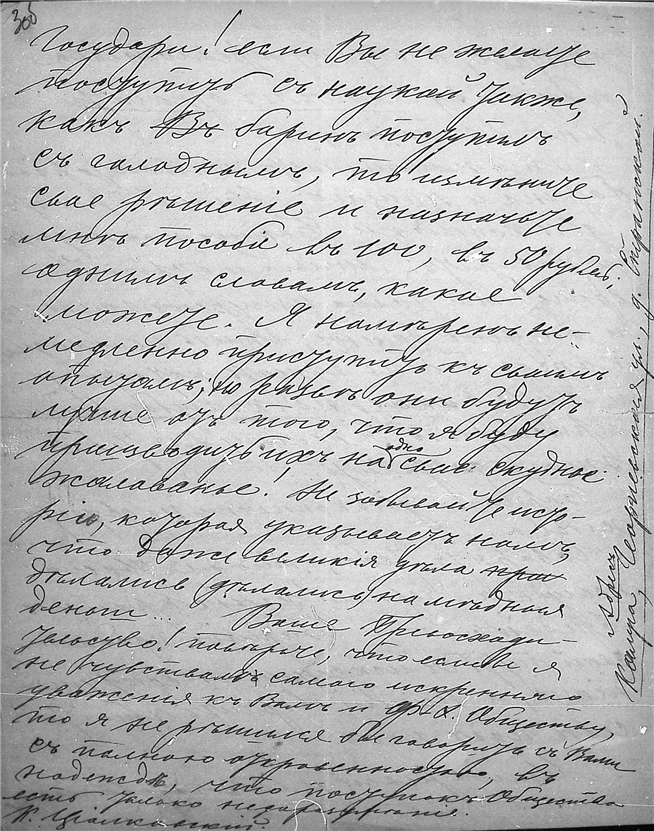 306
Государи! если Вы не желаете
поступить съ наукой также,
какъ Въ баринъ поступилъ
съ голоднымъ, то измѣните
свое рѣшеніе и назначьте
мнѣ пособіе въ 100, въ 50 рублей,
однимъ словомъ, какое
можете. Я намѣренъ не-
медленно приступить къ своимъ
опытамъ; но развѣ они будутъ
лучше отъ того, что я буду
производить ихъ на одно свое скудное
жалованье! Не забывайте исто-
рію, которая указываетъ намъ,
что даже великія дѣла
дѣлались (дѣлались) на мѣдныя
деньги... Ваше Превосходи-
тельство! повѣрьте, что еслибъ я
не чувствовалъ самаго искренняго
уваженія къ Вамъ и Ф.-Х. Обществу,
то я не рѣшился бы говорить съ Вами
съ полною откровенностью, въ
надеждѣ, что поступокъ Общества
есть только недоразумѣніе.
К. Ціолковскій.
Адресъ
Калуга, Георгіевская ул., д.